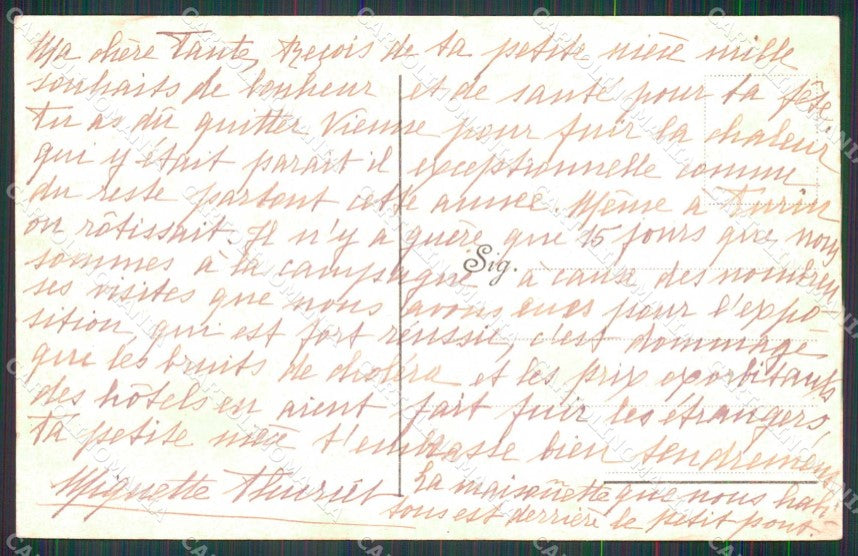 Ma chère Tante, Reçois de ta petite nièce mille
souhaits de bonheur et de santé pour ta fête.
Tu as dû quitter Vienne pour fuir la chaleur
qui y était parait il exceptionnelle comme
du reste partout cette année. Même a Turin
on rôtissait. Il n'y a guère que 15 jours que nous
sommes à la campagne à cause des nombreu
ses visites que nous avons eues pour l'expo-
sition, qui est fort réussie, c'est dommage
que les bruits de choléra et les prix exorbitants
des hôtels en aient fait fuir les étrangers.
Ta petite nièce t'embrasse bien tendrement
Mignette
La maisonnette que nous habi-
tons est derrière le petit pont.
Sig.
CARTOLINOMANIA